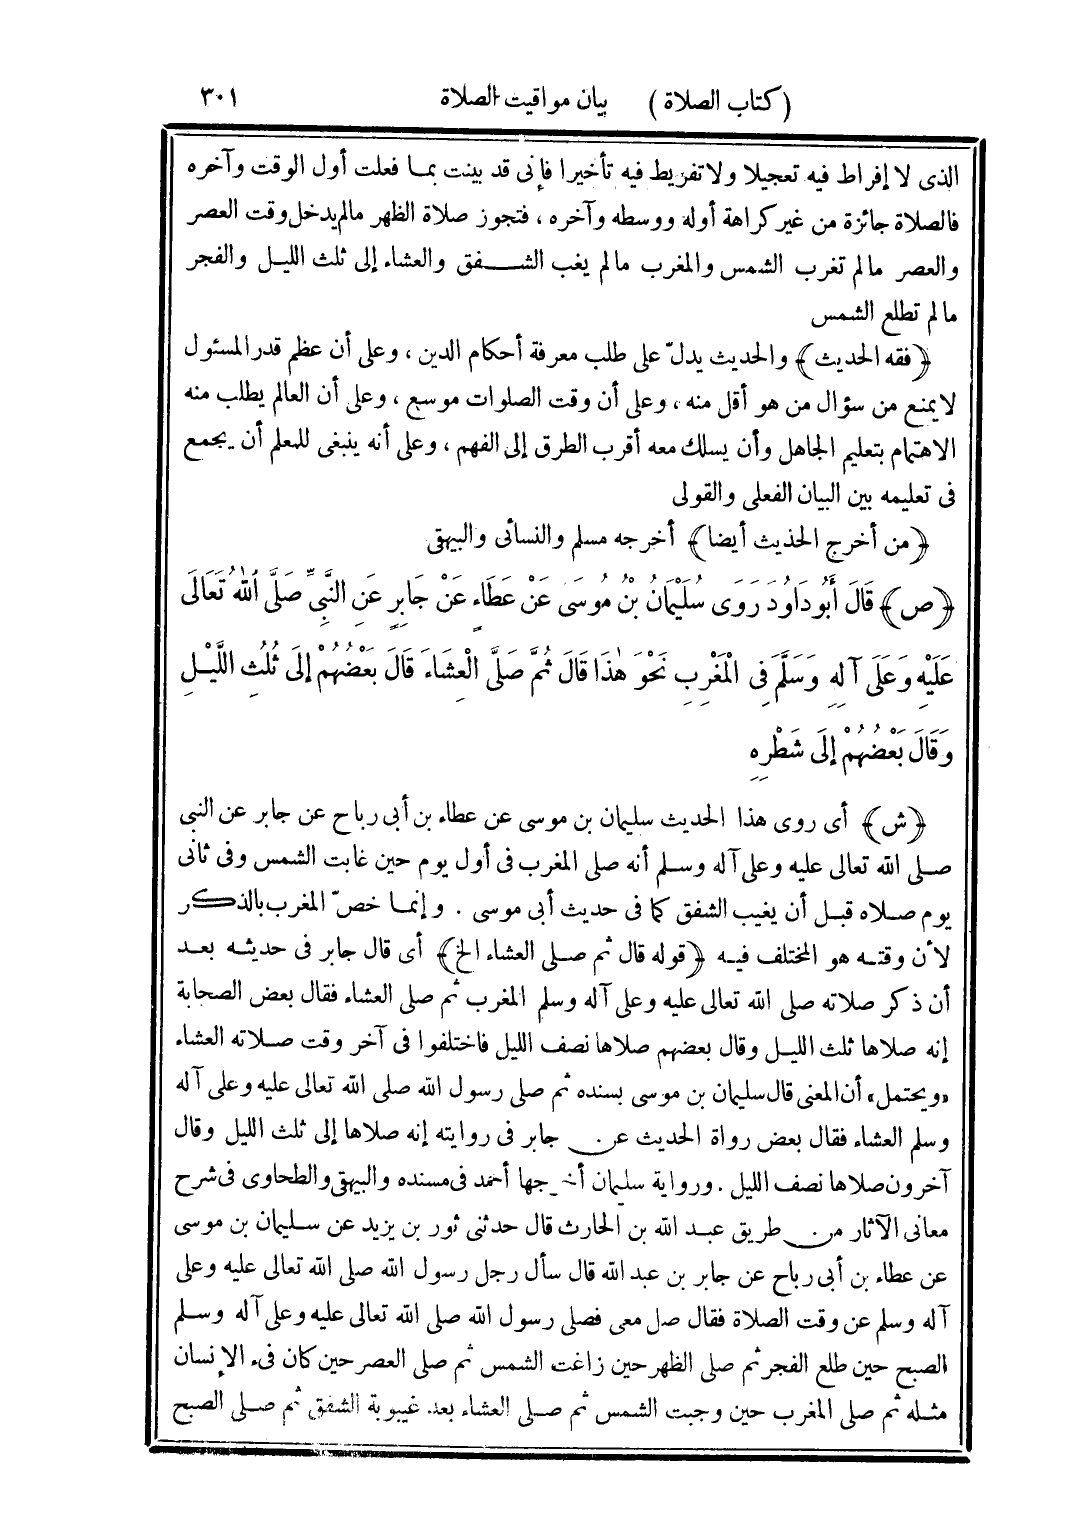 (كتاب الصلاة) بيان مواقيت الصلاة ٣٠١
الذى لا إفراط فيه تعجيلا ولا تفريط فيه تأخيرا فإنى قد بينت بما فعلت أول الوقت وآخره
فالصلاة جائزة من غير كراهة أوله ووسطه وآخره ، فتجوز صلاة الظهر مالم يدخل وقت العصر
والعصر مالم تغرب الشمس والمغرب مالم يغب الشفق والعشاء إلى ثلث الليل والفجر
مالم تطلع الشمس
﴿فقه الحديث﴾ والحديث يدلّ على طلب معرفة أحكام الدين ، وعلى أن عظم قدر المسئول
لا يمنع من سؤال من هو أقل منه ، وعلى أن وقت الصلوات موسع ، وعلى أن العالم يطلب منه
الاهتمام بتعليم الجاهل وأن يسلك معه أقرب الطرق إلى الفهم ، وعلى أنه ينبغى للمعلم أن يجمع
فى تعليمه بين البيان الفعلى والقولى
﴿من أخرج الحذيث أيضا﴾ أخرجه مسلم والنسائى والبيهقى
﴿ص﴾ قَالَ أَبُو دَاوُدَ رَوَى سُلَيْمَانُ بْنُ مُوسَى عَنْ عَطَاءٍ عَنْ جَابِرٍ عَنِ النَّبِىِّ صَلَّى اللهُ تَعَالَى
عَلَيْهِ وَعَلَى آلِهِ وَسَلَّمَ فِى الْمَغْرِبِ نَحْوَ هٰذَا قَالَ ثُمَّ صَلَّى الْعِشَاءَ قَالَ بَعْضُهُمْ إِلَى ثُلُثِ اللَّيْلِ
وَقَالَ بَعْضُهُمْ إِلَى شَطْرِهِ
﴿ش﴾ أى روى هذا الحديث سليمان بن موسى عن عطاء بن أبى رباح عن جابر عن النبى
صلى الله تعالى عليه وعلى آله وسلم أنه صلى المغرب فى أول يوم حين غابت الشمس وفى ثانى
يوم صلاه قبل أن يغيب الشفق كما فى حديث أبى موسى . وإنما خصّ المغرب بالذكر
لأن وقته هو المختلف فيه ﴿قوله قال ثم صلى العشاء الخ﴾ أى قال جابر فى حديثه بعد
أن ذكر صلاته صلى الله تعالى عليه وعلى آله وسلم المغرب ثم صلى العشاء فقال بعض الصحابة
إنه صلاها ثلث الليل وقال بعضهم صلاها نصف الليل فاختلفوا فى آخر وقت صلاته العشاء
«ويحتمل» أن المعنى قال سليمان بن موسى بسنده ثم صلى رسول الله صلى الله تعالى عليه وعلى آله
وسلم العشاء فقال بعض رواة الحديث عن جابر فى روايته إنه صلاها إلى ثلث الليل وقال
آخرون صلاها نصف الليل . ورواية سليمان أخرجها أحمد فى مسنده والبيهقى والطحاوى فى شرح
معانى الآثار من طريق عبد الله بن الحارث قال حدثنى ثور بن يزيد عن سليمان بن موسى
عن عطاء بن أبى رباح عن جابر بن عبد الله قال سأل رجل رسول الله صلى الله تعالى عليه وعلى
آله وسلم عن وقت الصلاة فقال صل معى فصلى رسول الله صلى الله تعالى عليه وعلى آله وسلم
الصبح حين طلع الفجر ثم صلى الظهر حين زاغت الشمس ثم صلى العصر حين كان فىء الإنسان
مثله ثم صلى المغرب حين وجبت الشمس ثم صلى العشاء بعد غيبوبة الشفق ثم صلى الصبح